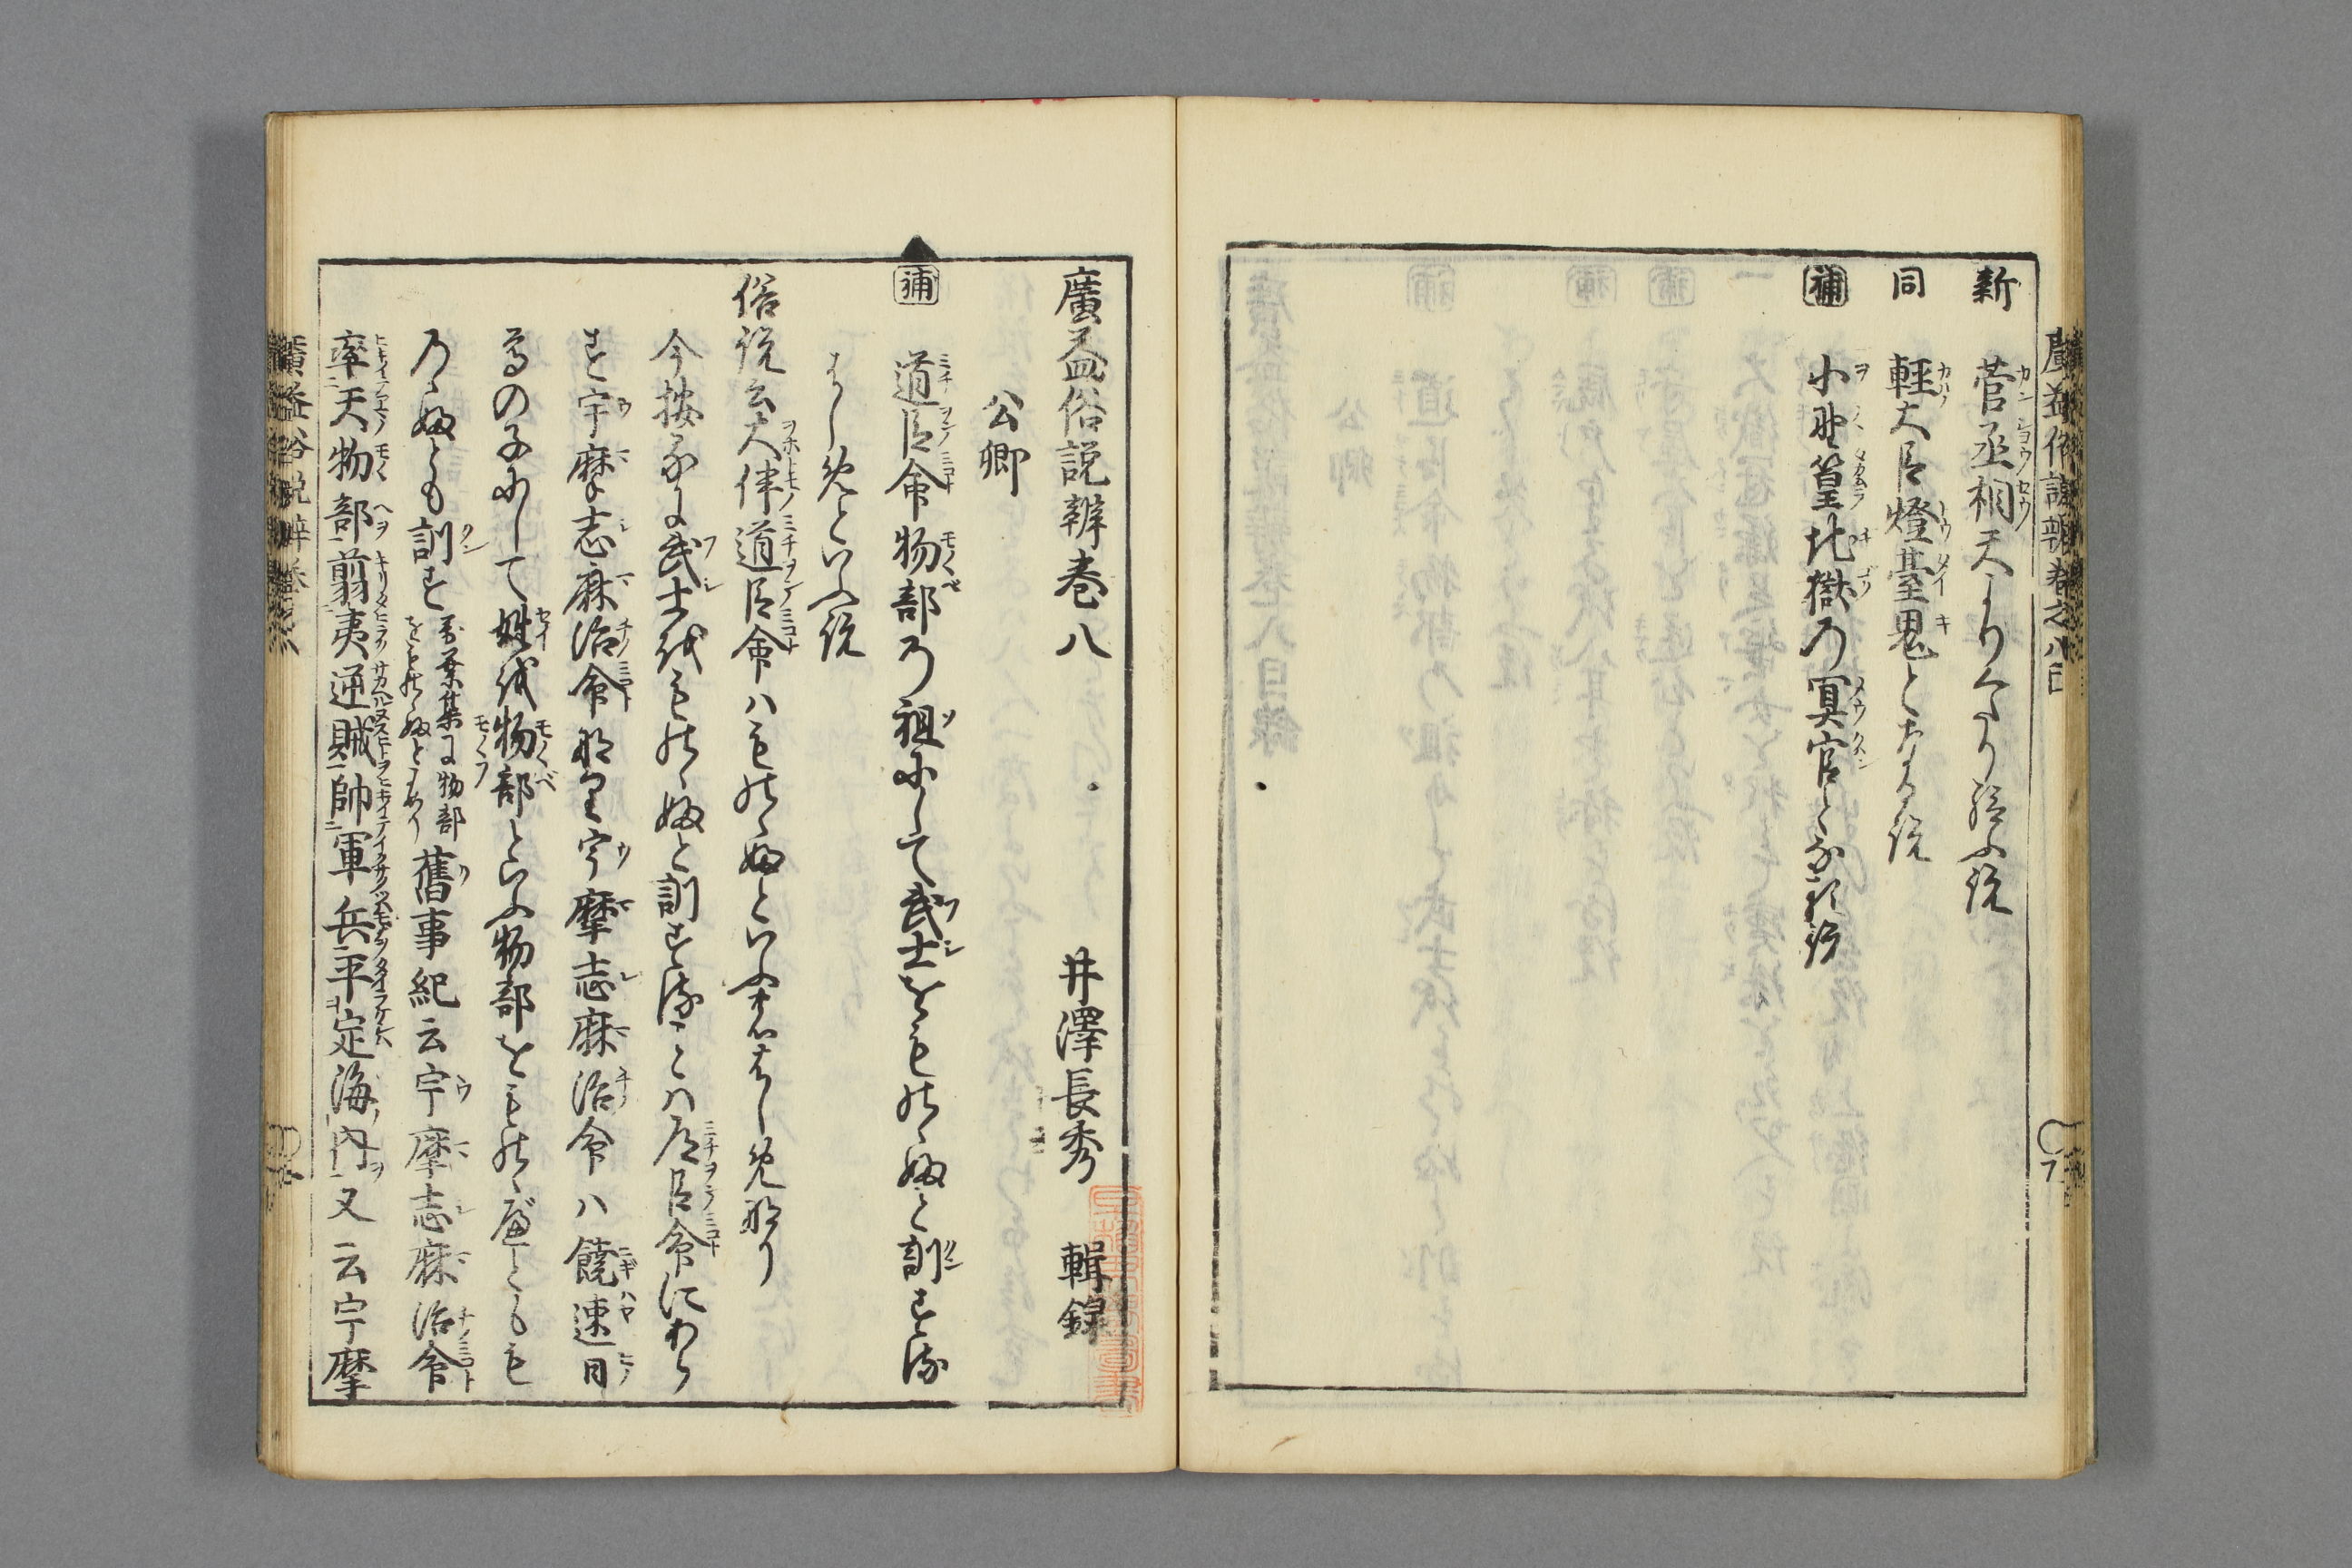 新 菅丞相天よりくたり給ふ説
同 軽大臣燈䑓鬼となる説
補 小野篁地獄の冥官となる説
廣益俗説辨巻八 井澤長秀 輯録
公卿
補 道臣命物部の祖にして武士をものゝふと訓する
はしめといふ説
俗説云大伴道臣命ハものゝふといふ事のはしめ也
今按るに武士をものゝふと訓することハ道臣命にあら
す宇摩志麻治命なり宇摩志麻治命ハ饒速日
尊の子にして姓を物部といふ物部をものゝべともも
のゝふとも訓す 万葉集に物部
をものゝふとよめり 舊事紀云宇摩志麻治命
率天物部翦夷逆賊帥軍兵平定海内又云宇摩